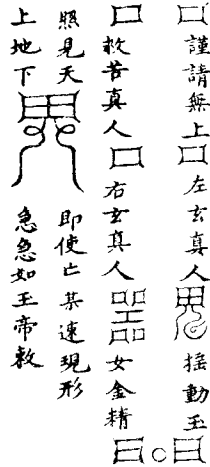 口謹請無上口左玄真人搖動玉日
口救苦真人口右玄真人女金精日
照見天即使亡某速現形
上地下急急如王帝敕